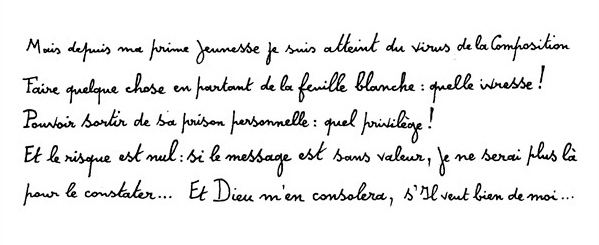 Mais depuis ma prime jeunesse je suis atteint du virus de la Composition
Faire quelque chose en partant de la feuille blanche : quelle ivresse !
Pouvoir sortir de sa prison personnelle : quel privilège !
Et le risque est nul : si le message est sans valeur, je ne serai plus là
pour le constater... Et Dieu m'en consolera, s'Il veut bien de moi...